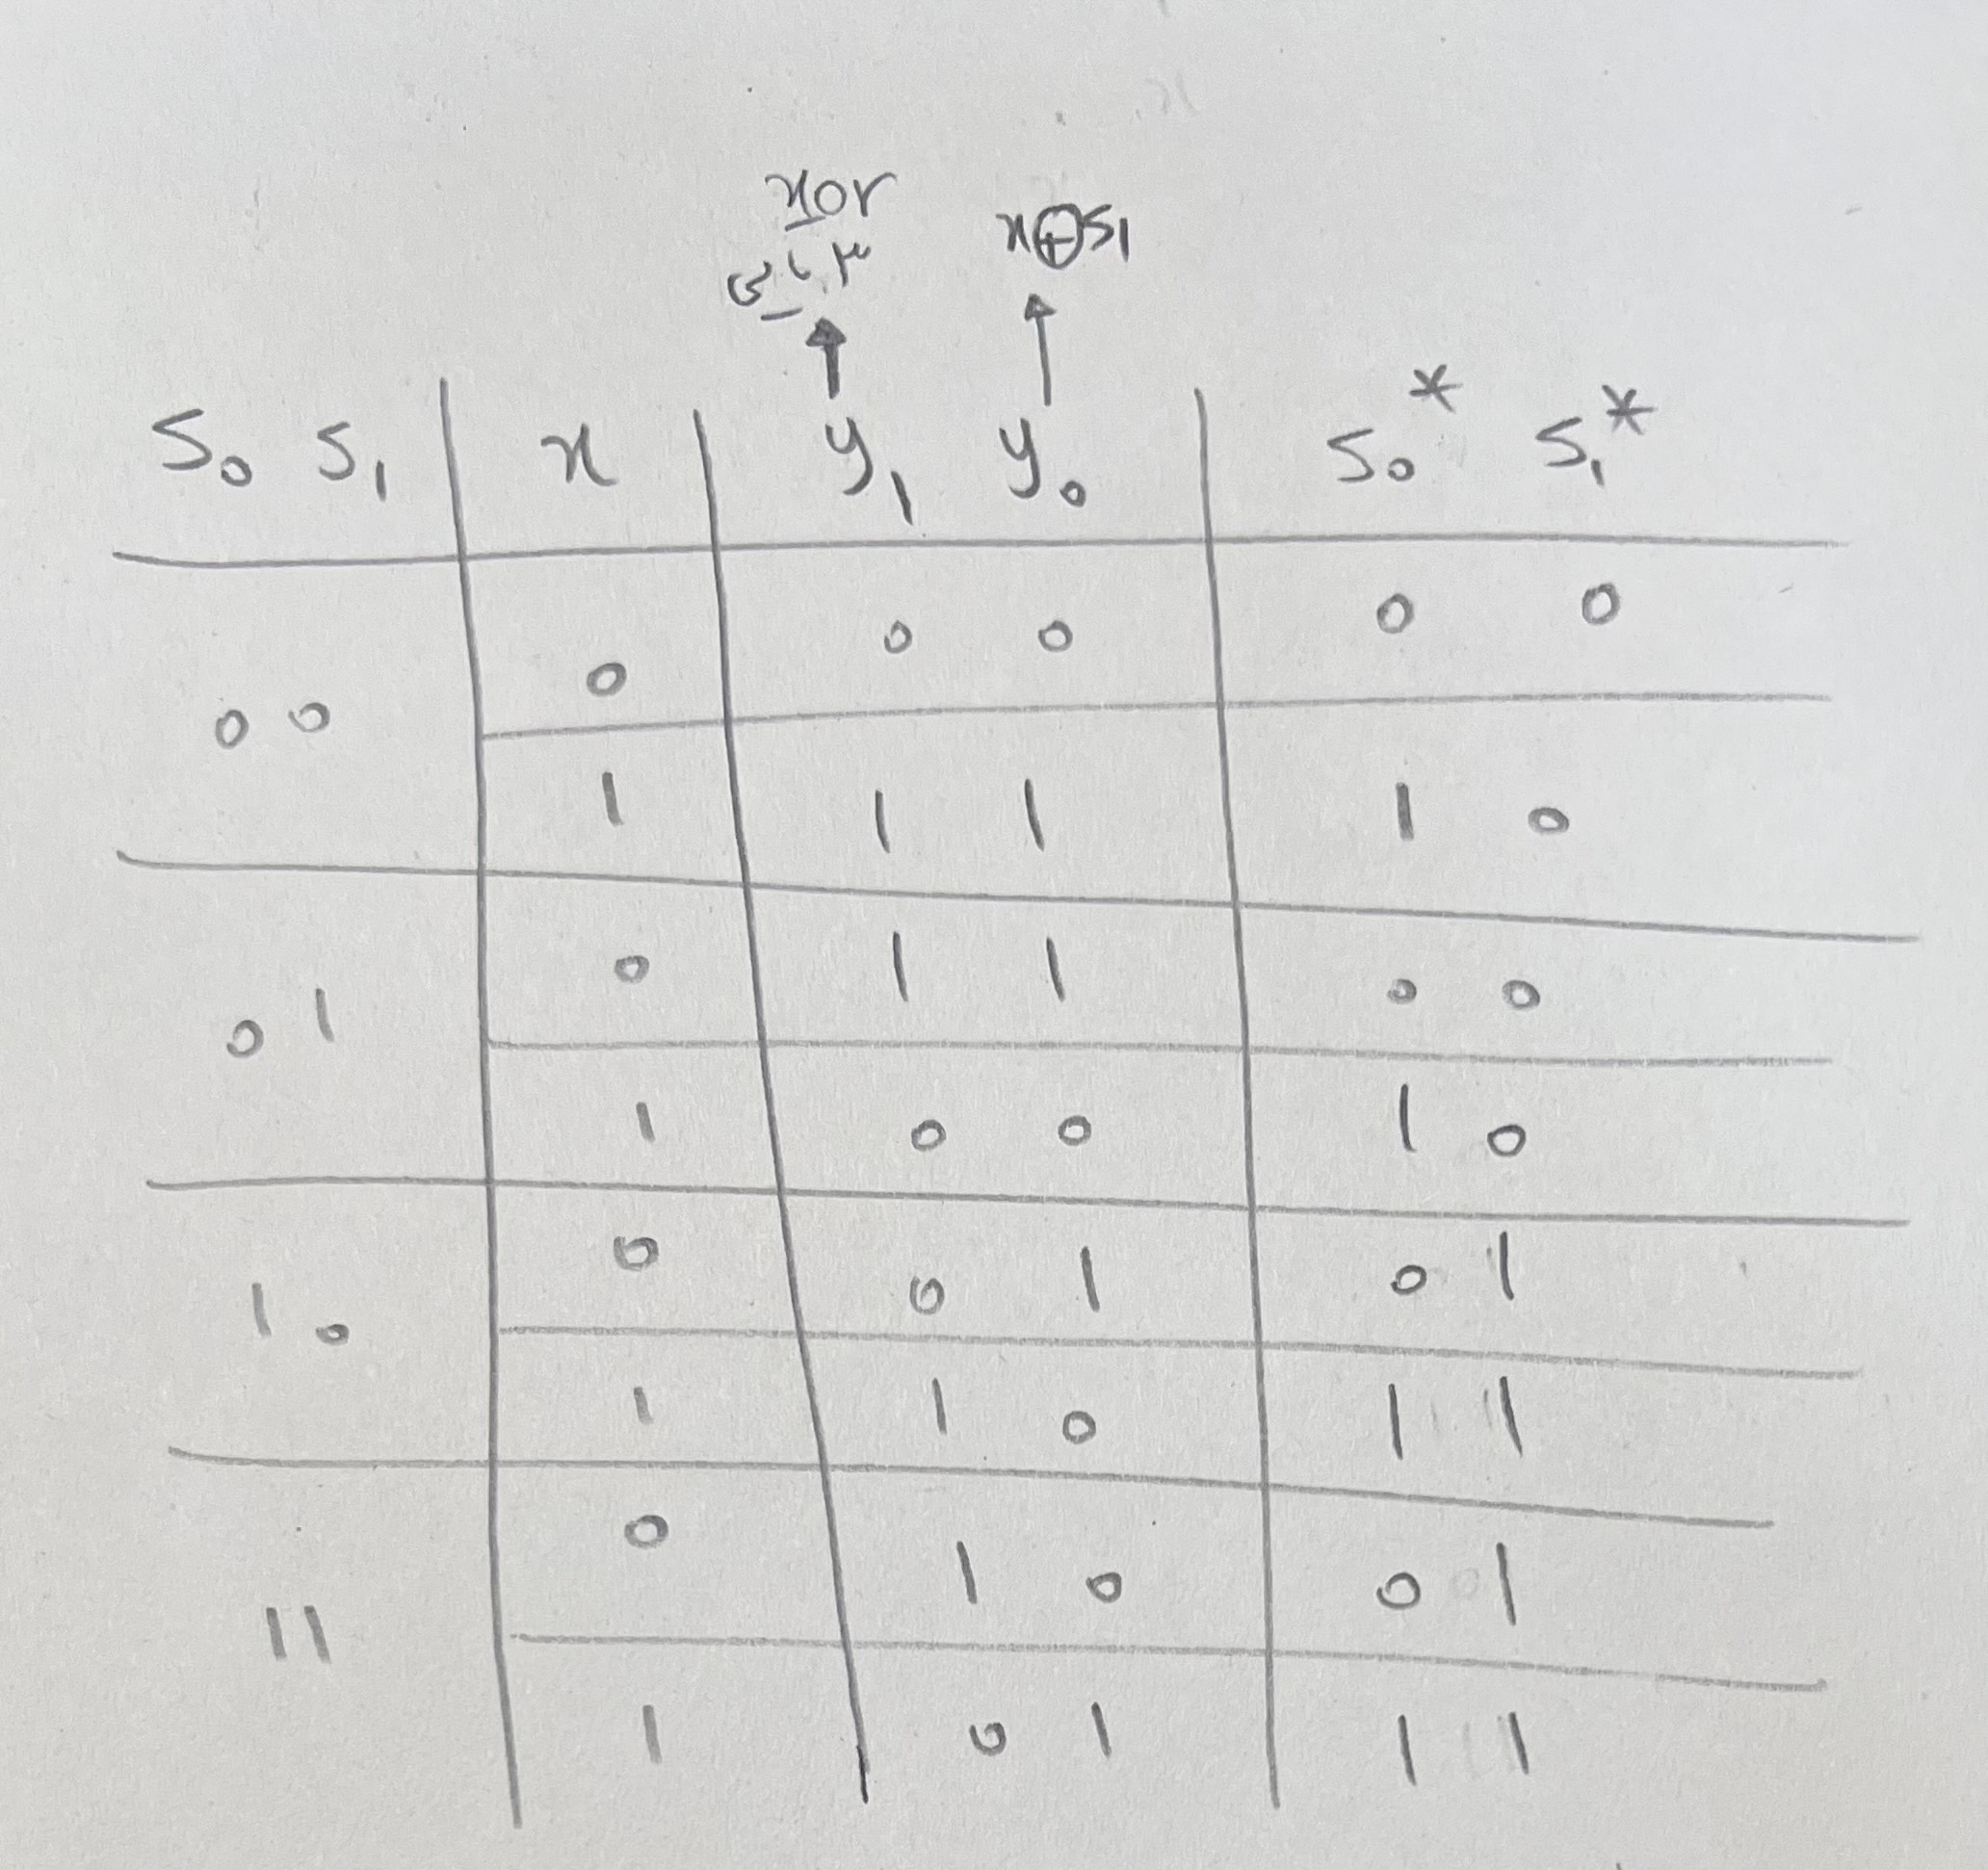 xor
x⊕s₁
S₀ S₁ x y₁ y₀ S₀* S₁*
0 0 0 0 0 0 0
1 1 1 1 0
0 1 0 1 1 0 0
1 0 0 1 0
1 0 0 0 1 0 1
1 1 0 1 1
1 1 0 1 0 0 1
1 0 1 1 1